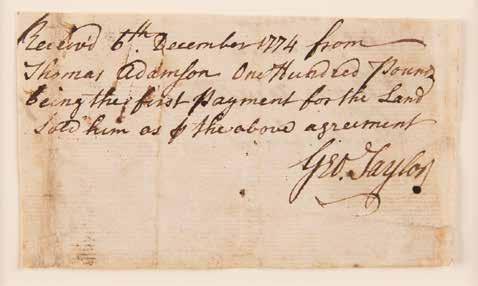 Receivd 6th December 1774 from
Thomas Adamson One Hundred Pound
being the first Payment for the Land
Sold him as ⅌ the above agreement
Geo. Taylor